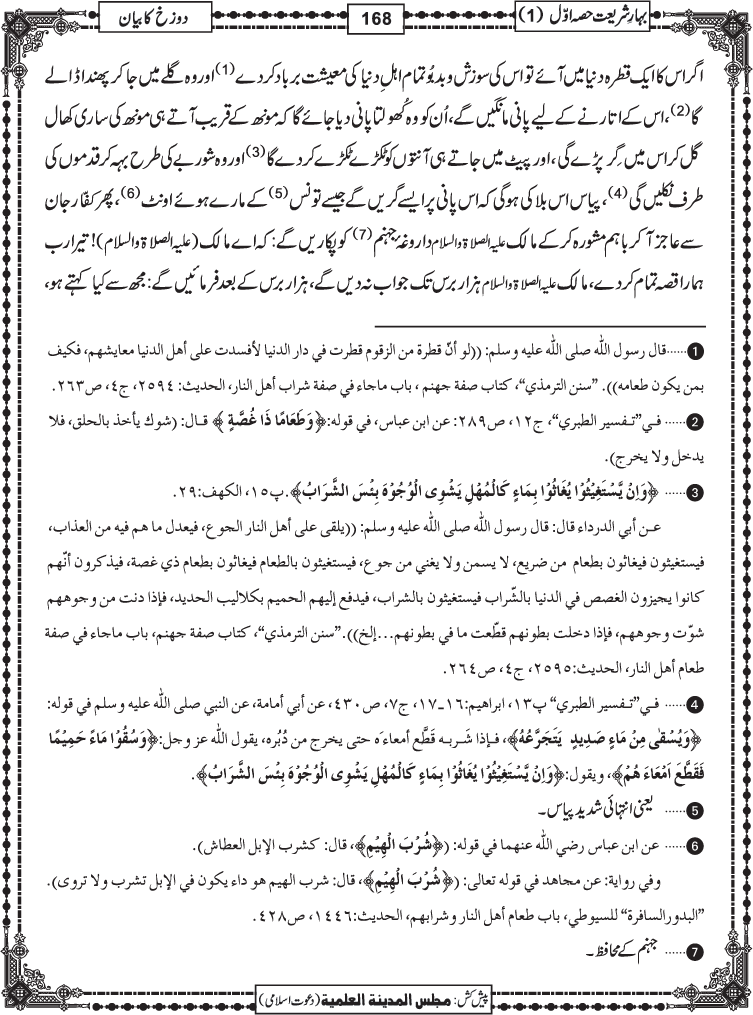 بہارِ شریعت حصہ اوّل (1)
168
دوزخ کا بیان
اگر اس کا ایک قطرہ دنیا میں آئے تو اس کی سوزش و بدبُو تمام اہلِ دنیا کی معیشت برباد کردے (1) اور وہ گلے میں جا کر پھندا ڈالے
گا (2)، اس کے اتارنے کے لیے پانی مانگیں گے، اُن کو وہ کُھولتا پانی دیا جائے گا کہ مونھ کے قریب آتے ہی مونھ کی ساری کھال
گل کر اس میں گِر پڑے گی، اور پیٹ میں جاتے ہی آنتوں کو ٹکڑے ٹکڑے کردے گا (3) اور وہ شوربے کی طرح بہہ کر قدموں کی
طرف نکلیں گی (4)، پیاس اس بلا کی ہوگی کہ اس پانی پر ایسے گریں گے جیسے تونس (5) کے مارے ہوئے اونٹ (6)، پھر کفّار جان
سے عاجز آکر باہم مشورہ کرکے مالک علیہ الصلاۃ والسلام داروغۂ جہنم (7) کو پکاریں گے: کہ اے مالک (علیہ الصلاۃ والسلام)! تیرا رب
ہمارا قصہ تمام کردے، مالک علیہ الصلاۃ والسلام ہزار برس تک جواب نہ دیں گے، ہزار برس کے بعد فرمائیں گے: مجھ سے کیا کہتے ہو،
1 ...... قال رسول اللّٰه صلى اللّٰه عليه وسلم: ((لو أنّ قطرة من الزقوم قطرت في دار الدنيا لأفسدت على أهل الدنيا معايشهم، فكيف
بمن يكون طعامه)). ”سنن الترمذي“، كتاب صفة جهنم، باب ماجاء في صفة شراب أهل النار، الحديث: ٢٥٩٤، ج٤، ص٢٦٣.
2 ...... في”تفسير الطبري“، ج١٢، ص٢٨٩: عن ابن عباس، في قوله:﴿وَطَعَامًا ذَا غُصَّةٍ﴾ قال: (شوك يأخذ بالحلق، فلا
يدخل ولا يخرج).
3 ...... ﴿وَاِنْ يَّسْتَغِيْثُوْا يُغَاثُوْا بِمَاءٍ كَالْمُهْلِ يَشْوِى الْوُجُوْهَ بِئْسَ الشَّرَابُ﴾.پ١٥، الكهف:٢٩.
عن أبي الدرداء قال: قال رسول اللّٰه صلى اللّٰه عليه وسلم: ((يلقى على أهل النار الجوع، فيعدل ما هم فيه من العذاب،
فيستغيثون فيغاثون بطعام من ضريع، لا يسمن ولا يغني من جوع، فيستغيثون بالطعام فيغاثون بطعام ذي غصة، فيذكرون أنّهم
كانوا يجيزون الغصص في الدنيا بالشّراب فيستغيثون بالشراب، فيدفع إليهم الحميم بكلاليب الحديد، فإذا دنت من وجوههم
شوّت وجوههم، فإذا دخلت بطونهم قطّعت ما في بطونهم...إلخ)).”سنن الترمذي“، كتاب صفة جهنم، باب ماجاء في صفة
طعام أهل النار، الحديث:٢٥٩٥، ج٤، ص٢٦٤.
4 ...... في”تفسير الطبري“ پ١٣، ابراهيم:١٦-١٧، ج٧، ص٤٣٠، عن أبي أمامة، عن النبي صلى اللّٰه عليه وسلم في قوله:
﴿وَيُسْقٰى مِنْ مَاءٍ صَدِيْدٍ يَتَجَرَّعُهٗ﴾، فإذا شربه قَطَّع أمعاءَه حتى يخرج من دُبُره، يقول اللّٰه عز وجل:﴿وَسُقُوْا مَاءً حَمِيْمًا
فَقَطَّعَ اَمْعَاءَ هُمْ﴾، ويقول:﴿وَاِنْ يَّسْتَغِيْثُوْا يُغَاثُوْا بِمَاءٍ كَالْمُهْلِ يَشْوِى الْوُجُوْهَ بِئْسَ الشَّرَابُ﴾.
5 ...... یعنی انتہائی شدید پیاس۔
6 ...... عن ابن عباس رضي اللّٰه عنهما في قوله: (﴿شُرْبَ الْهِيْمِ﴾، قال: كشرب الإبل العطاش).
وفي رواية: عن مجاهد في قوله تعالى: (﴿شُرْبَ الْهِيْمِ﴾، قال: شرب الهيم هو داء يكون في الإبل تشرب ولا تروى).
”البدور السافرة“ للسيوطي، باب طعام أهل النار وشرابهم، الحديث:١٤٤٦، ص٤٢٨.
7 ...... جہنم کے محافظ۔
پیش کش: مجلس المدینة العلمیة (دعوت اسلامی)